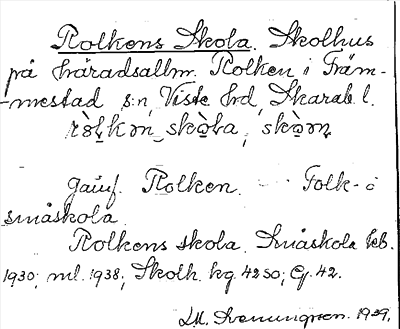 Rolkens Skola. Skolhus
på häradsallm. Rolken i Främ-
-mestad s:n, Viste hrd, Skarab. l.
ròlkən_skòla, skòən
Jämf. Rolken. Folk- o
småskola
Rolkens skola. Småskola leb.
1930; ml. 1938; Skolh. kg. 4250; Cg. 42.
1939.